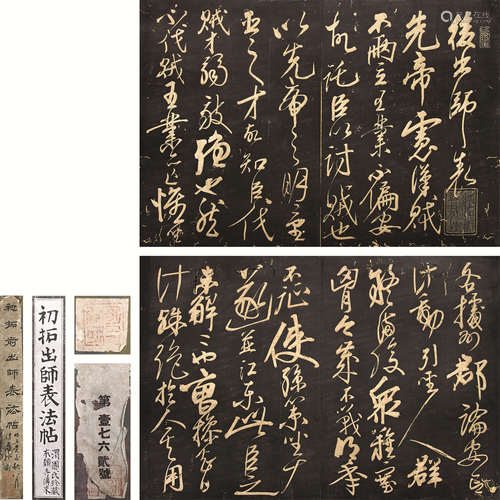 後出師表
先帝慮漢賊
不兩立王業不偏安
故託臣以討賊也
以先帝之明量
臣之才故知臣伐
賊才弱敵強也然
不伐賊王業亦亡惟坐
各據州郡論安言
計動引聖人群
疑滿腹眾難塞
胸今歲不戰明年
不征使孫策坐大
遂并江東此臣之
未解二也曹操智
計殊絕於人其用
初拓出師表法帖
第壹七六貳號